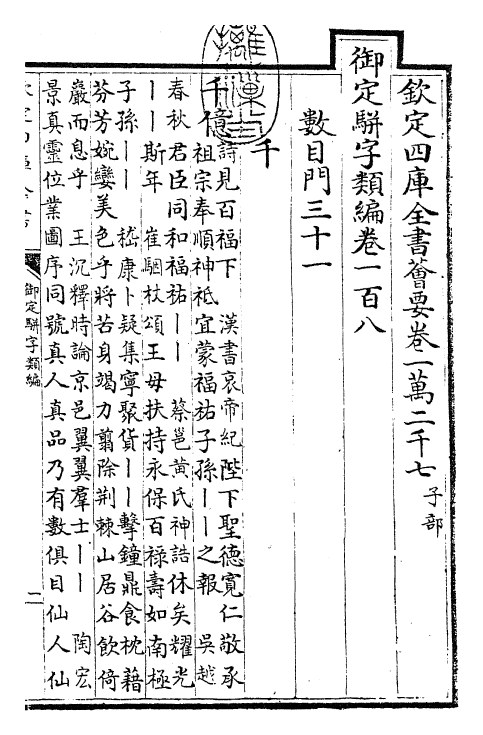 欽定四庫全書薈要卷一萬二千七 子部
御定駢字類編卷一百八
數目門三十一
千
千億
詩見百福下 漢書哀帝紀陛下聖德寬仁敬承
祖宗奉順神祗宜蒙福祐子孫丨丨之報 吳越
春秋君臣同和福祐丨丨 蔡邕黄氏神誥休矣耀光
丨丨斯年 崔駰杖頌王母扶持永保百禄壽如南極
子孫丨丨 嵇康卜疑集寧聚貨丨丨擊鐘鼎食枕藉
芬芳婉孌美色乎將苦身竭力翦除荆棘山居谷飲倚
巖而息乎 王沉釋時論京邑翼翼羣士丨丨 陶宏
景真靈位業圖序同號真人真品乃有數俱目仙人仙
御定駢字類編
二